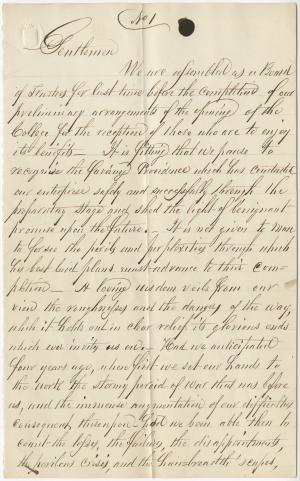 No 1
Gentlemen
We are assembled as a Board
of Trustees for last time before the completion of our
preliminary arrangements of the opening of the
College for the reception of those who are to enjoy
its benefits — It is fitting that we pause to
recognise the favoring Providence which has conducted
our enterprise safely and successfully through the
preparatory stage and shed the light of benignant
promise upon the future. — It is not given to man
to forsee the perils and perplexities through which
his best laid plans must advance to their com-
pletion — A loving wisdom veils from our
view the roughness and the dangers of the way,
while it holds out in clear relief its glorious ends
which ever invite us on. — Had we anticipated
four years ago, when first we set our hands to
the work the stormy period of war that was before
us, and the immense augmentation of our difficulties
consequent thereupon — Had we been able then to
count the losses, the failures, the disappointments,
the perilous crises, and the hairbreadth 'scapes,